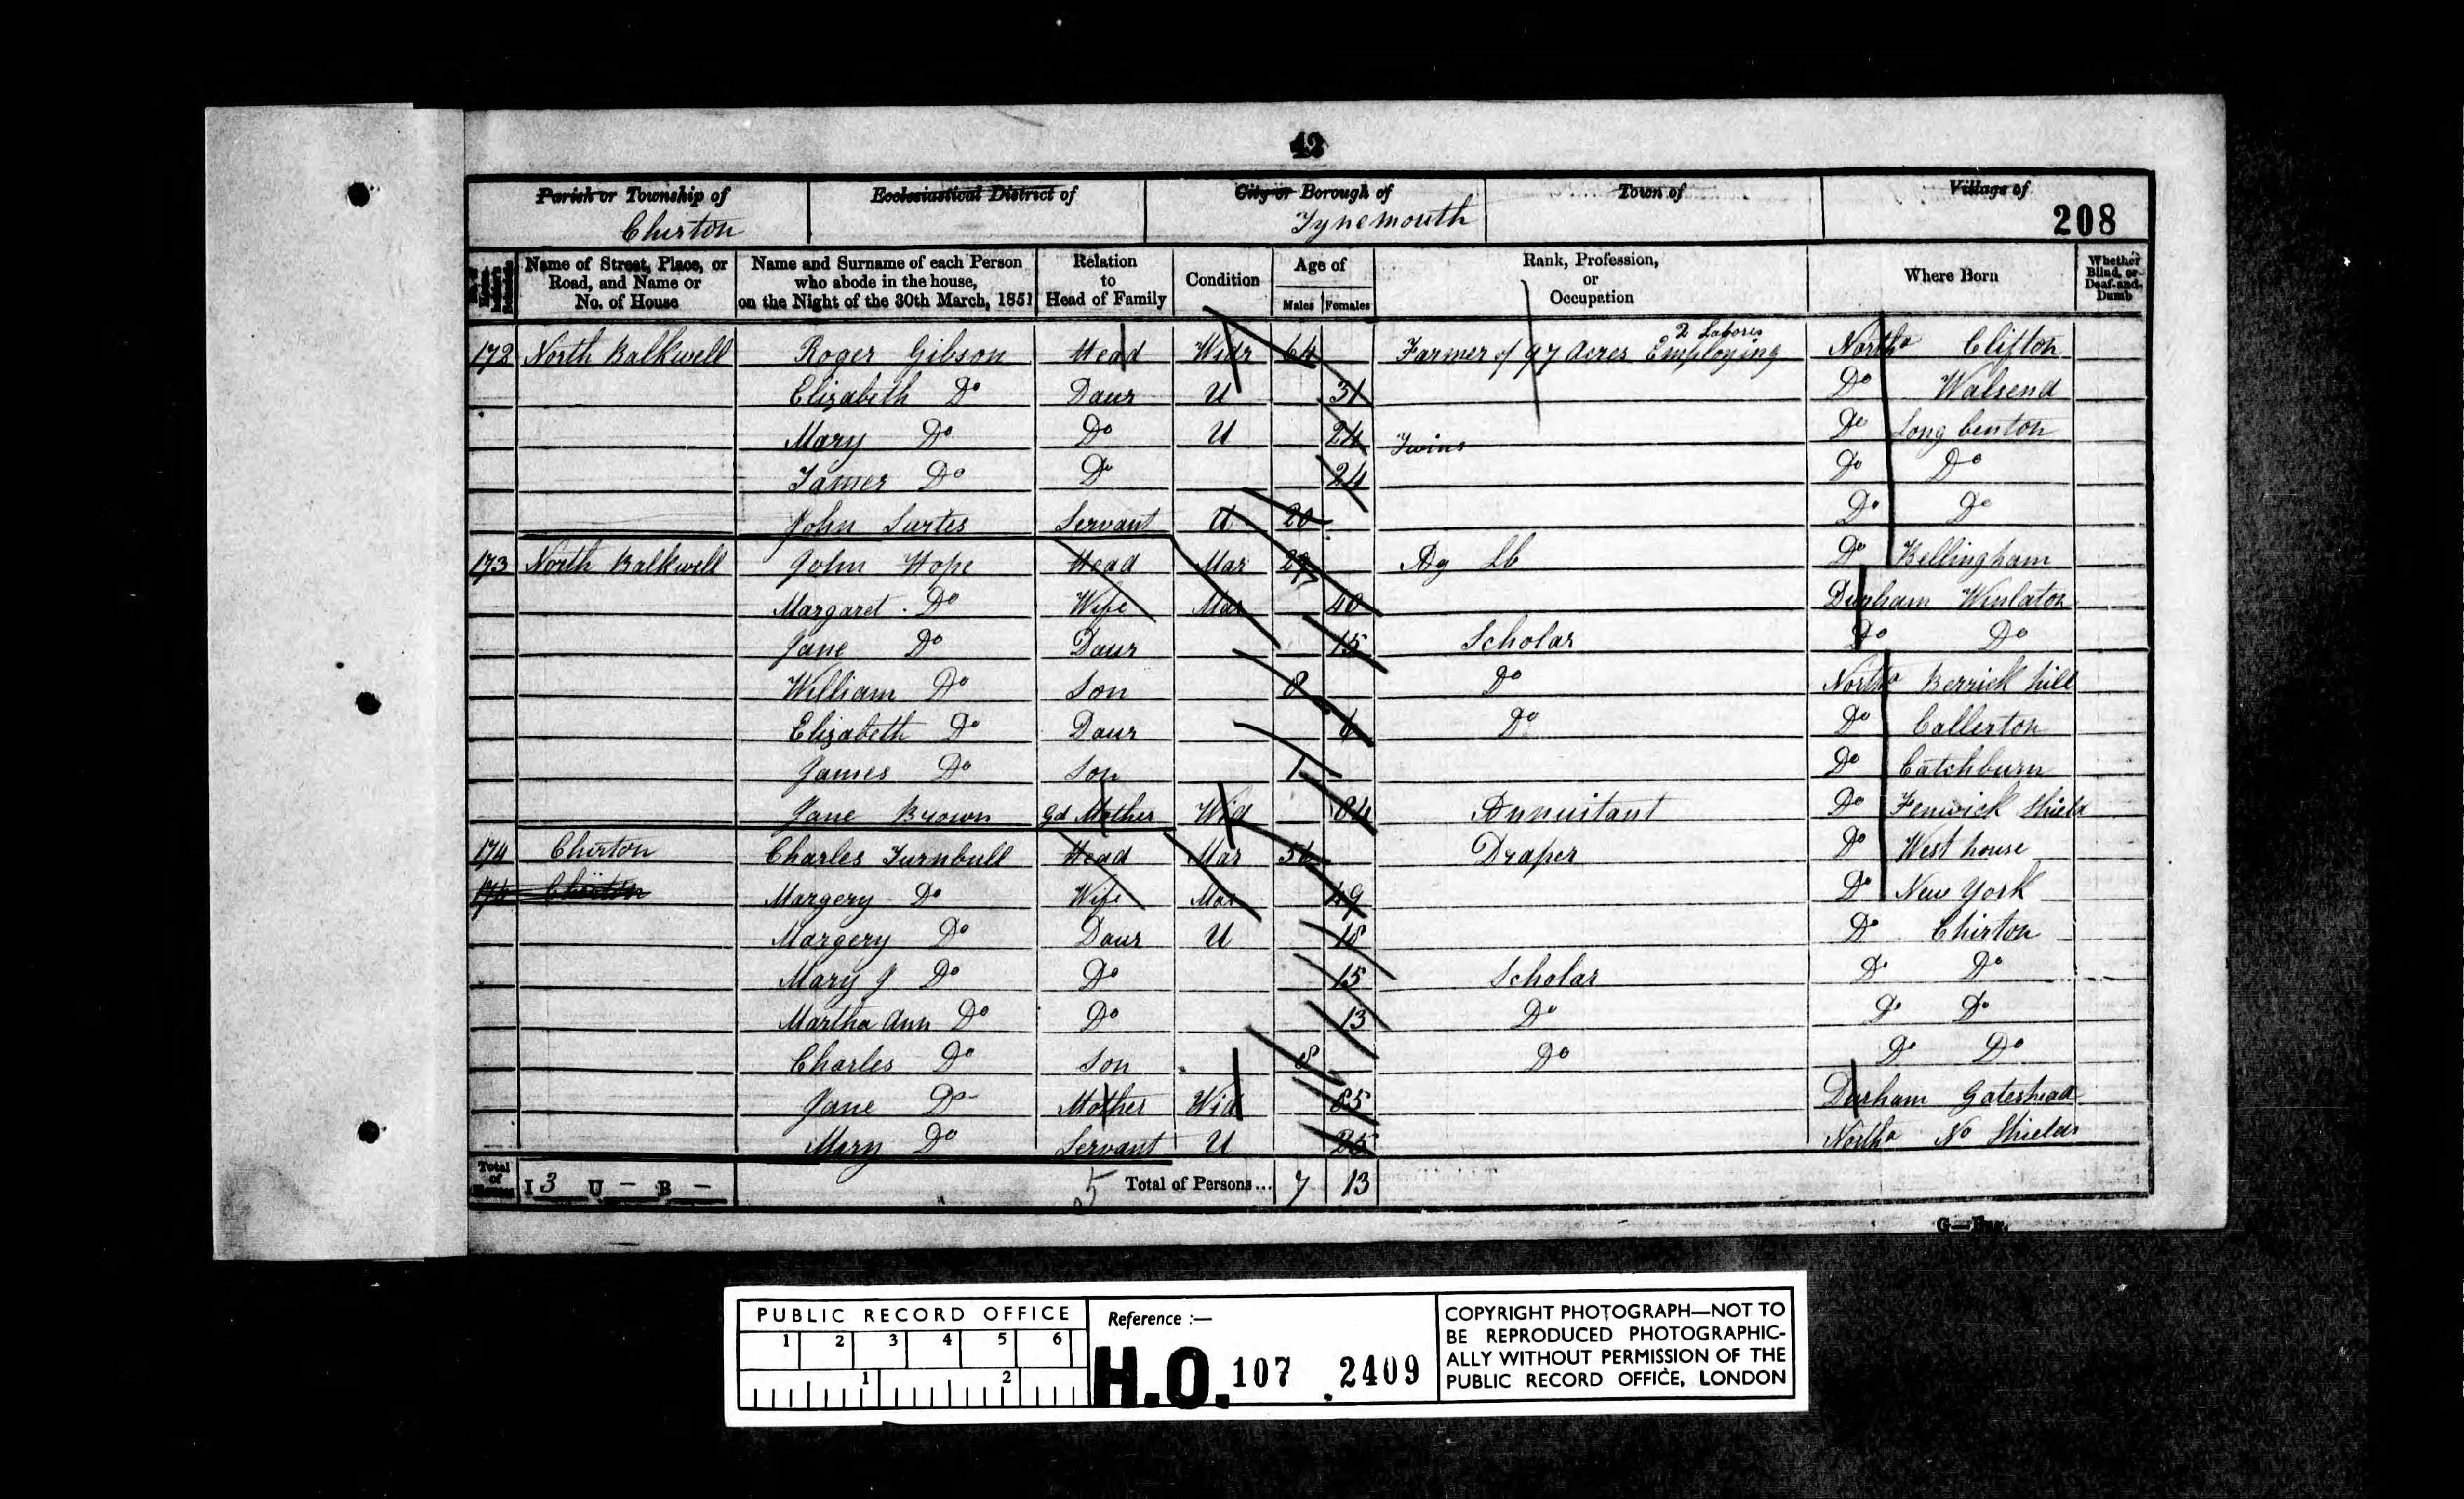 42
Parish or Township of
Chirton
Ecclesiastical District of
City or Borough of
Tynemouth
Town of
Village of
208
Name of Street, Place, or Road, and Name or No. of House
Name and Surname of each Person who abode in the house, on the Night of the 30th March, 1851
Relation to Head of Family
Condition
Age of
Males Females
Rank, Profession, or Occupation
Where Born
Whether Blind, or Deaf-and-Dumb
172 North Balkwell Roger Gibson Head Widr 64 Farmer of 97 Acres Employing 2 Labores Northd Clifton
Elizabeth Do Daur U 31 Do Walsend
Mary Do Do U 24 Twins Do Long benton
Tamer Do Do 24 Do Do
John Surtes Servant U 20 Do Do
173 North Balkwell John Hope Head Mar 29 Ag Lb Do Bellingham
Margaret Do Wife Mar 40 Durham Winlaton
Jane Do Daur 15 Scholar Do Do
William Do Son 8 Do Northd Berrick hill
Elizabeth Do Daur 6 Do Do Callerton
James Do Son 1 Do Catchburn
Jane Brown Gd Mother Wid 84 Annuitant Do Fenwick Shield
174 Chirton Charles Turnbull Head Mar 56 Draper Do West house
174 Chirton Margery Do Wife Mar 49 Do New York
Margery Do Daur U 18 Do Chirton
Mary J Do Do 15 Scholar Do Do
Martha Ann Do Do 13 Do Do Do
Charles Do Son 8 Do Do Do
Jane Do Mother Wid 85 Durham Gateshead
Mary Do Servant U 25 Northd No Shields
Total of Houses I 3 U - B - 5 Total of Persons... 7 13
PUBLIC RECORD OFFICE
1 2 3 4 5 6
1 2
Reference :-
H.O. 107 . 2409
COPYRIGHT PHOTOGRAPH—NOT TO
BE REPRODUCED PHOTOGRAPHIC-
ALLY WITHOUT PERMISSION OF THE
PUBLIC RECORD OFFICE, LONDON